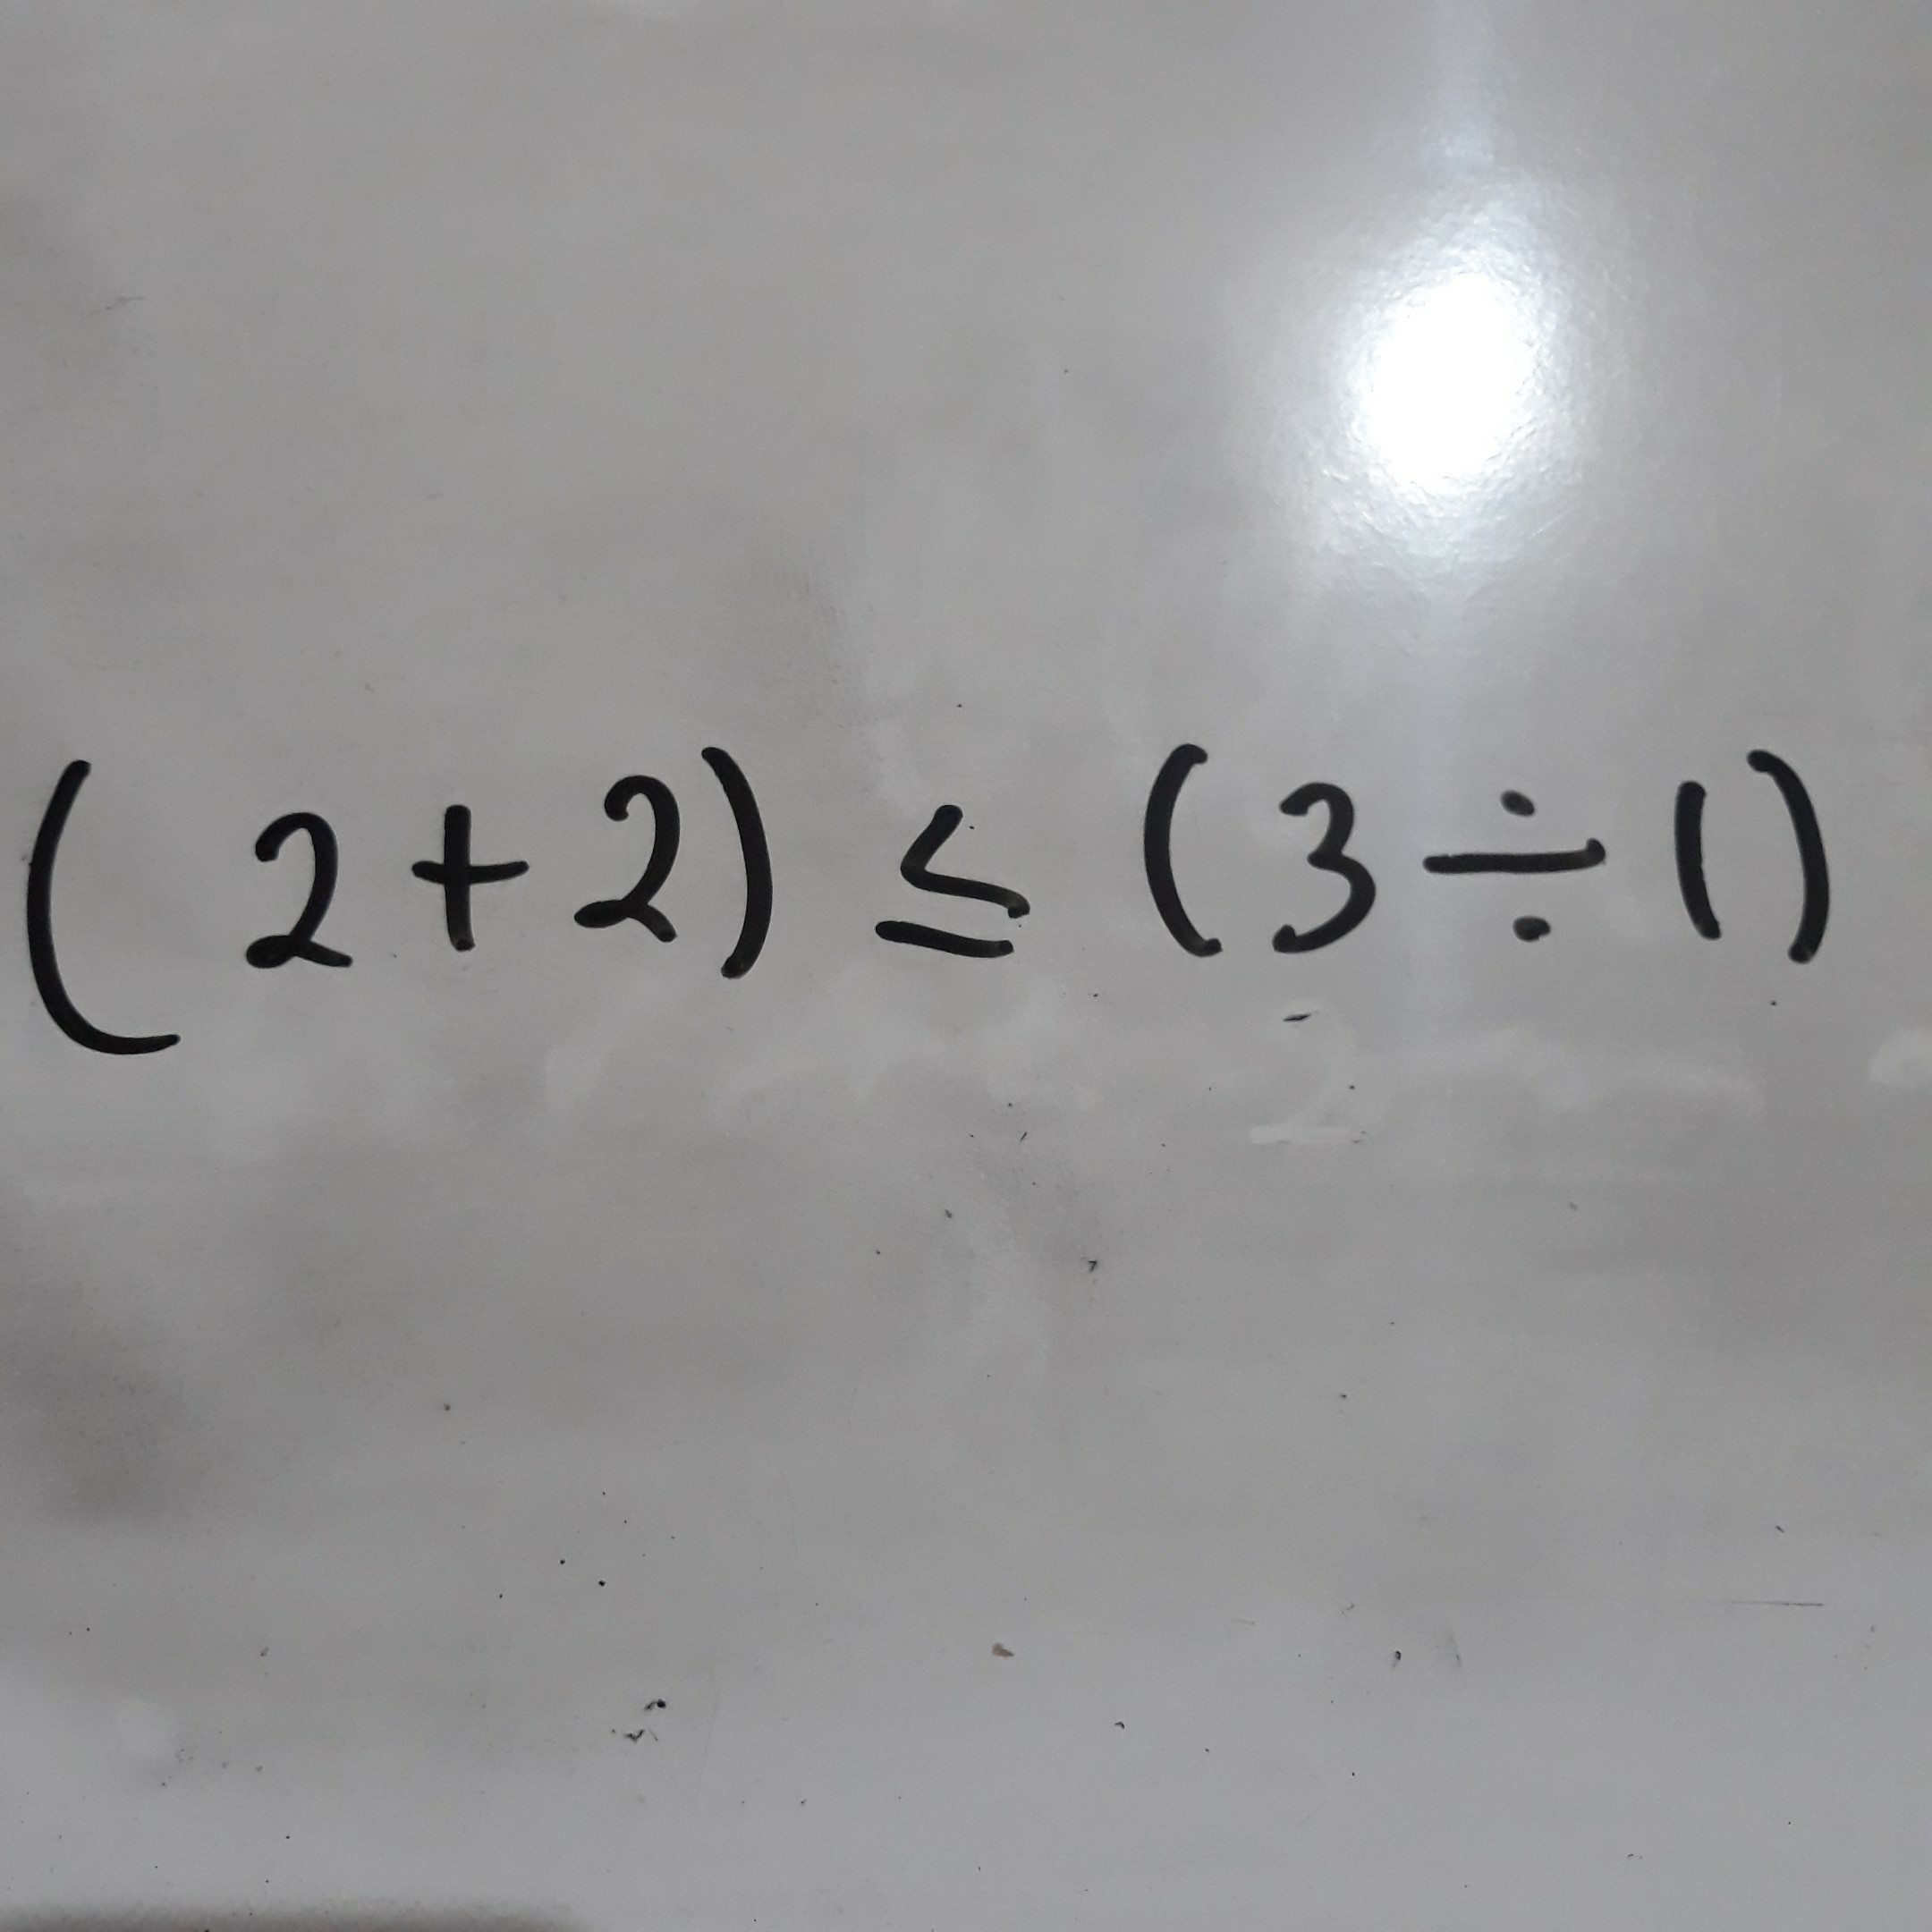 (2+2) ≤ (3÷1)